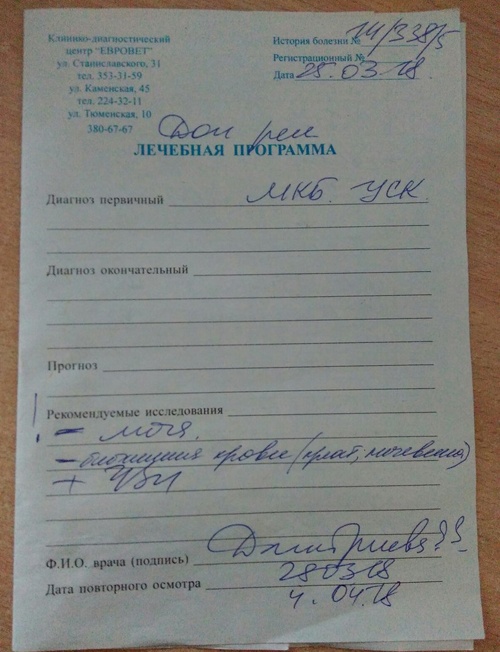 Клинико-диагностический
центр "ЕВРОВЕТ"
ул. Станиславского, 31
тел. 353-31-59
ул. Каменская, 45
тел. 224-32-11
ул. Тюменская, 10
380-67-67
История болезни № 14/338/5
Регистрационный №
Дата 25.03.18.
Дол рек
ЛЕЧЕБНАЯ ПРОГРАММА
Диагноз первичный МКБ. УСК.
Диагноз окончательный
Прогноз
Рекомендуемые исследования
- моча.
- биохимия крови (креат, мочевина)
+ УЗИ
Ф.И.О. врача (подпись) Дмитриева
Дата повторного осмотра 28.03.18
4.04.18